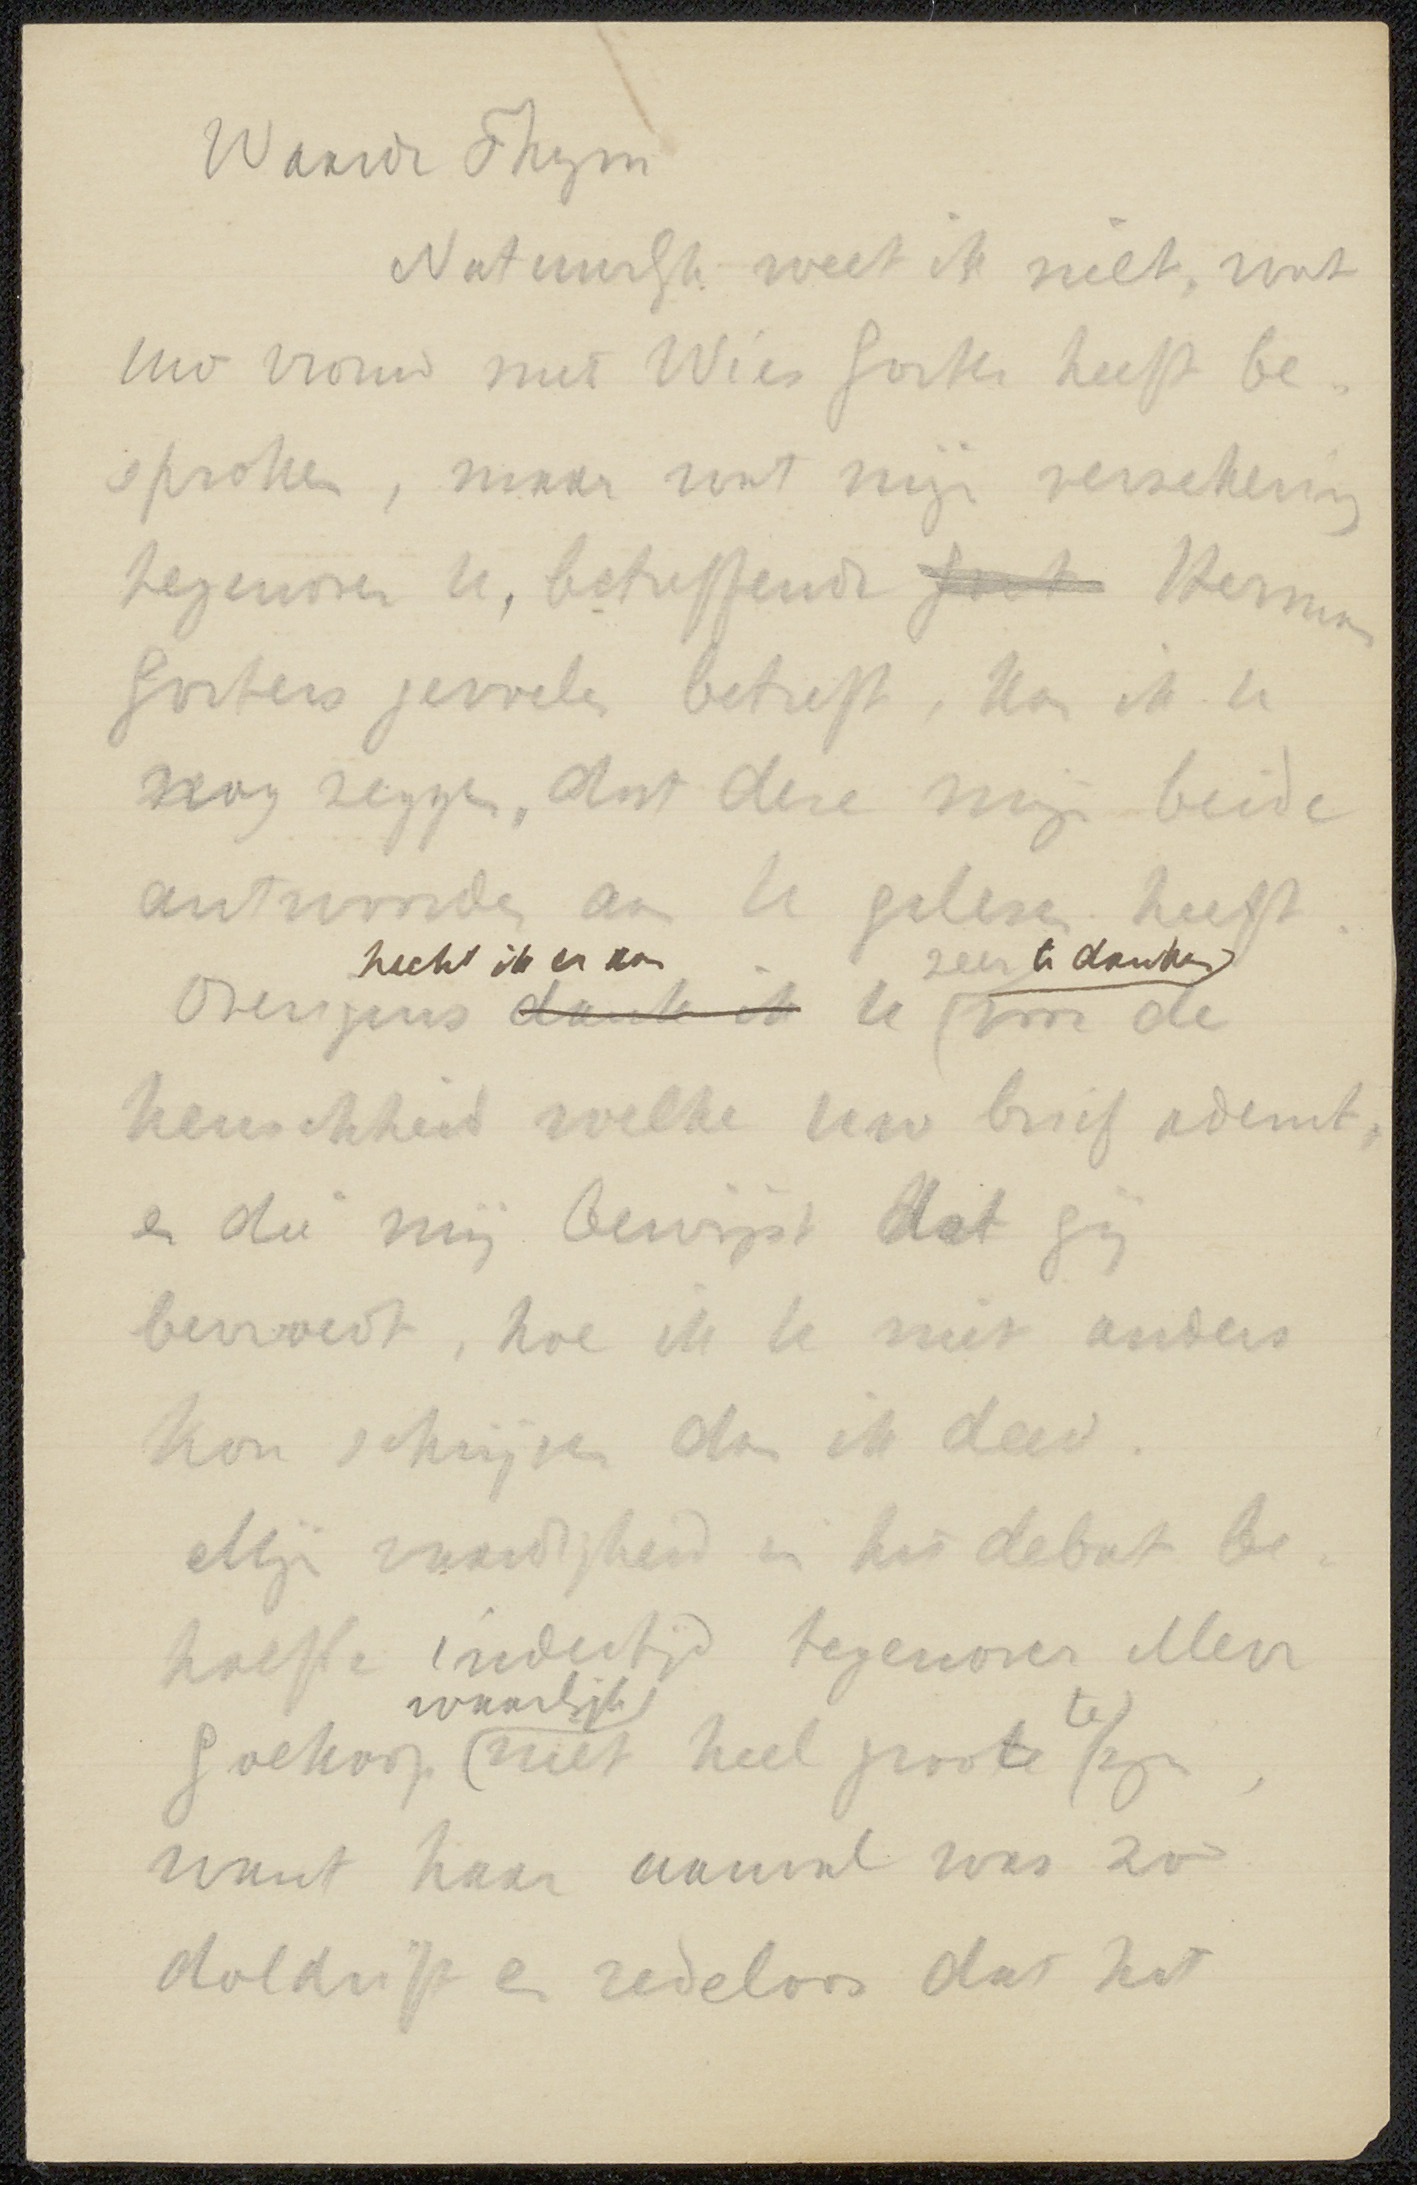 Waarde Thym
Natuurlijk weet ik niet, wat
uw vrouw met Wies Gorter heeft be-
sproken, maar wat mijn verzekering
tegenover U, betreffende Gort Herman
Gorters gevoelen betreft, kan ik U
nog zeggen, dat deze mijn beide
antwoorden aan U gelezen heeft.
hecht ik er aan zeer te danken
Overigens dank ik U voor de
heuschheid welke uw brief ademt,
en die mij bewijst dat gij
bevroedt, hoe ik U niet anders
kon schrijven dan ik deed.
Mijn vaardigheid in het debat be-
hoefde indertijd tegenover Mevr
waarlijk te
Goekoop niet heel groot zijn,
want haar aanval was zoo
doldriftig en redeloos dat het